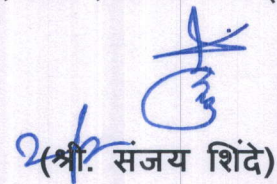 (श्री. संजय शिंदे)